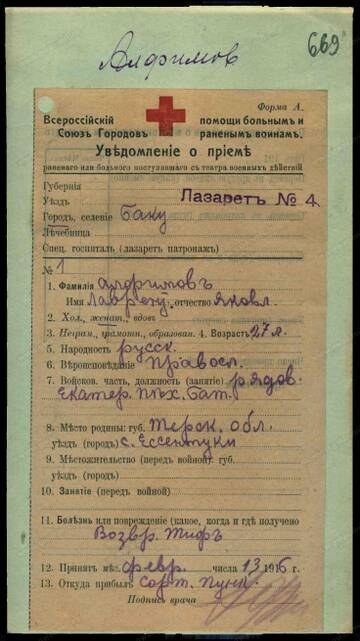 669
Алфимовъ
Форма А.
Всероссійскій помощи больнымъ и
Союзъ Городовъ раненымъ воинамъ.
Увѣдомленіе о пріемѣ
раненаго или больного поступившаго съ театра военныхъ дѣйствій
Губернія
Уѣздъ Лазаретъ № 4.
Городъ, селеніе Баку
Лѣчебница
Спец. госпиталь (лазаретъ патронажъ)
№ 1
1. Фамилія Алфимовъ
Имя Лаврент. отчество Яковл.
2. Хол., женат., вдовъ
3. Неграм., грамотн., образован. 4. Возрастъ 27 л.
5. Народность русск.
6. Вѣроисповѣданіе Правосл.
7. Войсков. часть, должность (занятіе) рядов.
Екатер. Пѣх. бат.
8. Мѣсто родины: губ. Терск. обл.
уѣздъ (городъ) с. Ессентуки
9. Мѣстожительство (передъ войной) губ.
уѣздъ (городъ)
10. Занятіе (передъ войной)
11. Болѣзнь или поврежденіе (какое, когда и гдѣ получено
Возвр. Тифъ
12. Принятъ мѣс. февр. числа 13 1916 г.
13. Откуда прибылъ сорт. пунк.
Подпись врача